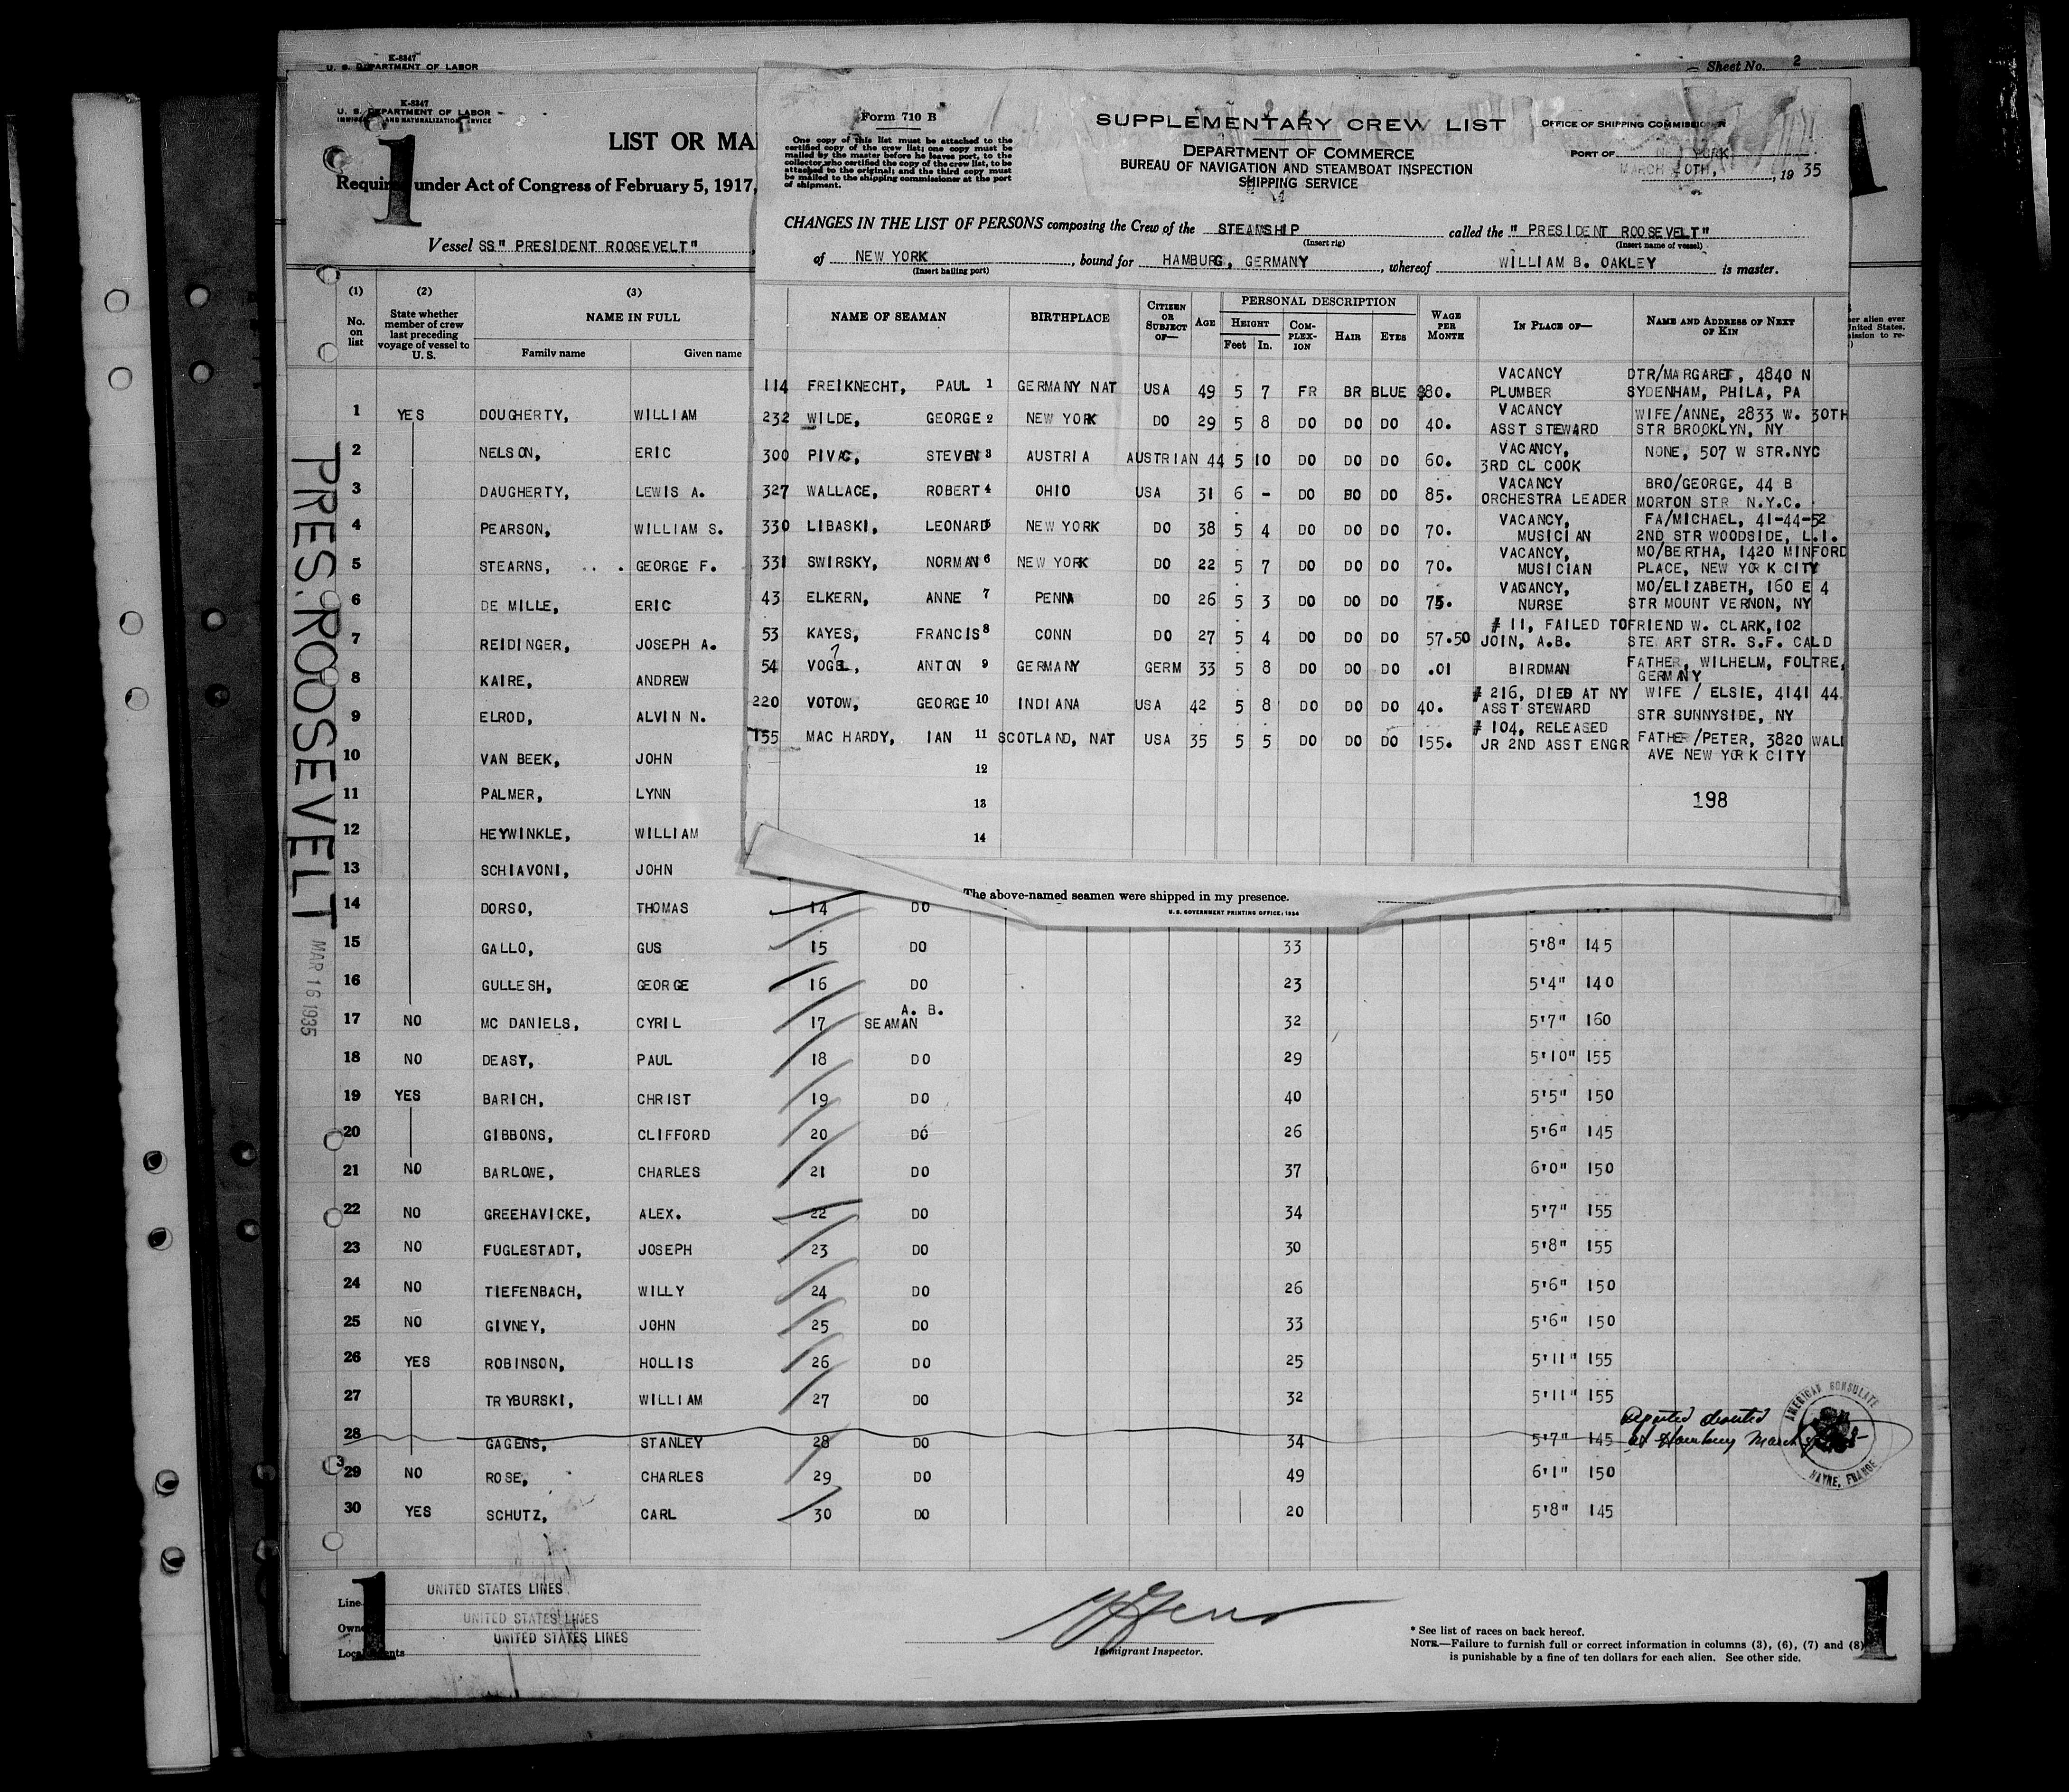 K-8347
U. S. DEPARTMENT OF LABOR
Sheet No. 2
K-8347
U. S. DEPARTMENT OF LABOR
1
LIST OR MA
Required under Act of Congress of February 5, 1917,
Vessel SS" PRESIDENT ROOSEVELT"
Form 710 B
One copy of this list must be attached to the
certified copy of the crew list; one copy must be
mailed by the master before he leaves port, to the
collector who certified the copy of the crew list, to be
attached to the original; and the third copy must
be mailed to the shipping commissioner at the port
of shipment.
SUPPLEMENTARY CREW LIST
DEPARTMENT OF COMMERCE
BUREAU OF NAVIGATION AND STEAMBOAT INSPECTION
SHIPPING SERVICE
OFFICE OF SHIPPING COMMISSIONER
PORT OF YORK
MARCH , 19 35
CHANGES IN THE LIST OF PERSONS composing the Crew of the STEAMSHIP called the " PRESIDENT ROOSEVELT"
(Insert rig) (Insert name of vessel)
of NEW YORK , bound for HAMBURG, GERMANY , whereof WILLIAM B. OAKLEY is master.
(Insert hailing port)
NAME OF SEAMAN BIRTHPLACE CITIZEN OR SUBJECT OF— AGE PERSONAL DESCRIPTION HEIGHT Feet In. COMPLEXION HAIR EYES WAGE PER MONTH IN PLACE OF— NAME AND ADDRESS OF NEXT OF KIN
114 FREIKNECHT, PAUL 1 GERMANY NAT USA 49 5 7 FR BR BLUE $80. VACANCY PLUMBER DTR/MARGARET, 4840 N SYDENHAM, PHILA, PA
232 WILDE, GEORGE 2 NEW YORK DO 29 5 8 DO DO DO 40. VACANCY ASST STEWARD WIFE/ANNE, 2833 W. 30TH STR BROOKLYN, NY
300 PIVAC, STEVEN 3 AUSTRIA AUSTRIAN 44 5 10 DO DO DO 60. VACANCY, 3RD CL COOK NONE, 507 W STR.NYC
327 WALLACE, ROBERT 4 OHIO USA 31 6 - DO DO DO 85. VACANCY ORCHESTRA LEADER BRO/GEORGE, 44 B MORTON STR N.Y.C.
330 LIBASKI, LEONARD 5 NEW YORK DO 38 5 4 DO DO DO 70. VACANCY, MUSICIAN FA/MICHAEL, 41-44-52 2ND STR WOODSIDE, L.I.
331 SWIRSKY, NORMAN 6 NEW YORK DO 22 5 7 DO DO DO 70. VACANCY, MUSICIAN MO/BERTHA, 1420 MINFORD PLACE, NEW YORK CITY
43 ELKERN, ANNE 7 PENNA DO 26 5 3 DO DO DO 75. VACANCY, NURSE MO/ELIZABETH, 160 E 4 STR MOUNT VERNON, NY
53 KAYES, FRANCIS 8 CONN DO 27 5 4 DO DO DO 57.50 # 11, FAILED TO JOIN, A.B. FRIEND W. CLARK, 102 STE ART STR. S.F. CALD
54 VOGEL, ANTON 9 GERMANY GERM 33 5 8 DO DO DO .01 BIRDMAN FATHER, WILHELM, FOLTRE, GERMANY
220 VOTOW, GEORGE 10 INDIANA USA 42 5 8 DO DO DO 40. # 216, DIED AT NY ASST STEWARD WIFE / ELSIE, 4141 44. STR SUNNYSIDE, NY
155 MAC HARDY, IAN 11 SCOTLAND, NAT USA 35 5 5 DO DO DO 155. # 104, RELEASED JR 2ND ASST ENGR FATHE /PETER, 3820 WAL AVE NEW YORK CITY
12
13
198
14
The above-named seamen were shipped in my presence.
U. S. GOVERNMENT PRINTING OFFICE: 1934
(1) (2) (3)
No. on list State whether member of crew last preceding voyage of vessel to U. S. NAME IN FULL
Family name Given name
1 YES DOUGHERTY, WILLIAM
2 NELSON, ERIC
3 DAUGHERTY, LEWIS A.
4 PEARSON, WILLIAM S.
5 STEARNS, GEORGE F.
6 DE MILLE, ERIC
7 REIDINGER, JOSEPH A.
8 KAIRE, ANDREW
9 ELROD, ALVIN N.
10 VAN BEEK, JOHN
11 PALMER, LYNN
12 HEYWINKLE, WILLIAM
13 SCHIAVONI, JOHN
14 DORSO, THOMAS 14 DO
15 GALLO, GUS 15 DO 33 5'8" 145
16 GULLESH, GEORGE 16 DO 23 5'4" 140
17 NO MC DANIELS, CYRIL 17 A. B. SEAMAN 32 5'7" 160
18 NO DEASY, PAUL 18 DO 29 5'10" 155
19 YES BARICH, CHRIST 19 DO 40 5'5" 150
20 GIBBONS, CLIFFORD 20 DO 26 5'6" 145
21 NO BARLOWE, CHARLES 21 DO 37 6'0" 150
22 NO GREEHAVICKE, ALEX. 22 DO 34 5'7" 155
23 NO FUGLESTADT, JOSEPH 23 DO 30 5'8" 155
24 NO TIEFENBACH, WILLY 24 DO 26 5'6" 150
25 NO GIVNEY, JOHN 25 DO 33 5'6" 150
26 YES ROBINSON, HOLLIS 26 DO 25 5'11" 155
27 TRYBURSKI, WILLIAM 27 DO 32 5'11" 155
28 GAGENS, STANLEY 28 DO 34 5'7" 145 Reported deserted at Hamburg March
AMERICAN CONSULATE HAVRE, FRANCE
29 NO ROSE, CHARLES 29 DO 49 6'1" 150
30 YES SCHUTZ, CARL 30 DO 20 5'8" 145
PRES. ROOSEVELT
MAR 16 1935
Line UNITED STATES LINES
Owners UNITED STATES LINES
Local Agents UNITED STATES LINES
1
Immigrant Inspector.
* See list of races on back hereof.
NOTE.—Failure to furnish full or correct information in columns (3), (6), (7) and (8)
is punishable by a fine of ten dollars for each alien. See other side.
1